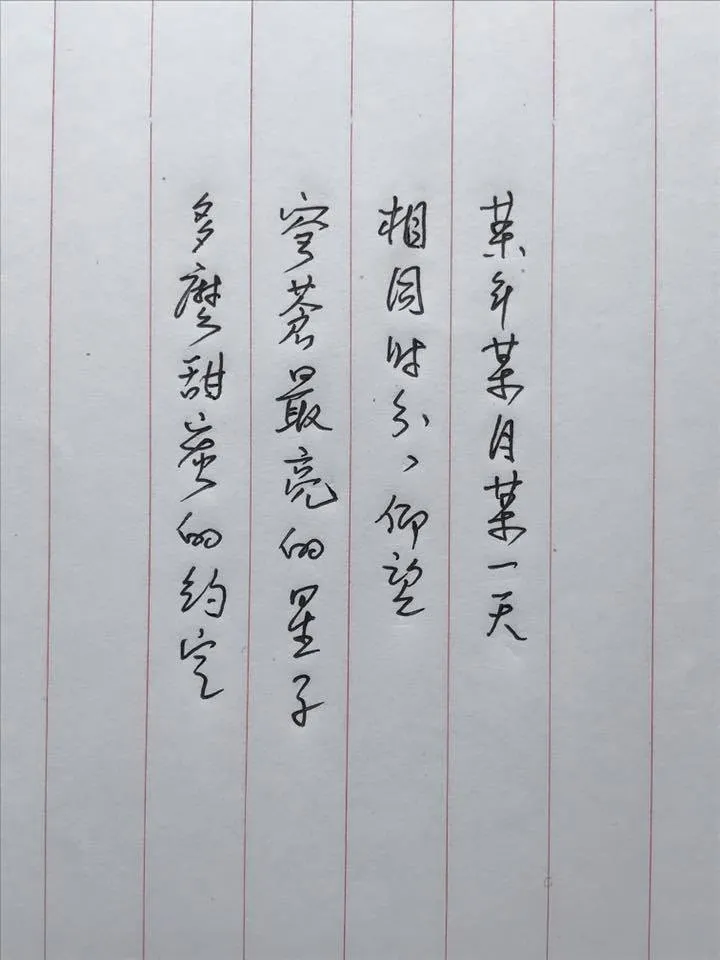 某年某月某一天
相同时分、仰望
穹苍最亮的星子
多麼甜蜜的约定